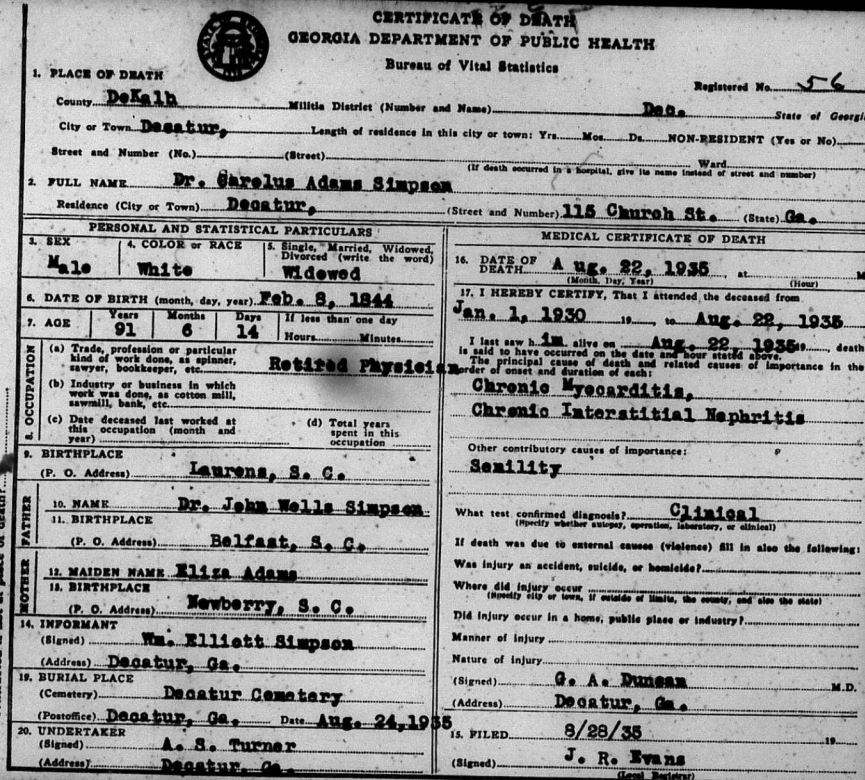 CERTIFICATE OF DEATH
GEORGIA DEPARTMENT OF PUBLIC HEALTH
Bureau of Vital Statistics
Registered No. 56
1. PLACE OF DEATH
County DeKalb Militia District (Number and Name) Dec. State of Georgia
City or Town Decatur, Length of residence in this city or town: Yrs. Mos. Ds. NON-RESIDENT (Yes or No)
Street and Number (No.) (Street) Ward
(If death occurred in a hospital, give its name instead of street and number)
2. FULL NAME Dr. Carolus Adams Simpson
Residence (City or Town) Decatur, (Street and Number) 115 Church St. (State) Ga.
PERSONAL AND STATISTICAL PARTICULARS
3. SEX Male
4. COLOR or RACE White
5. Single, Married, Widowed, Divorced (write the word) Widowed
6. DATE OF BIRTH (month, day, year) Feb. 8, 1844
7. AGE Years 91 Months 6 Days 14 If less than one day Hours Minutes
8. OCCUPATION
(a) Trade, profession or particular
kind of work done, as spinner,
sawyer, bookkeeper, etc. Retired Physician
(b) Industry or business in which
work was done, as cotton mill,
sawmill, bank, etc.
(c) Date deceased last worked at
this occupation (month and
year)
(d) Total years
spent in this
occupation
9. BIRTHPLACE
(P. O. Address) Laurens, S. C.
FATHER
10. NAME Dr. John Wells Simpson
11. BIRTHPLACE
(P. O. Address) Belfast, S. C.
MOTHER
12. MAIDEN NAME Eliza Adams
13. BIRTHPLACE
(P. O. Address) Newberry, S. C.
14. INFORMANT
(Signed) Wm. Elliett Simpson
(Address) Decatur, Ga.
19. BURIAL PLACE
(Cemetery) Decatur Cemetery
(Postoffice) Decatur, Ga. Date Aug. 24, 1935
20. UNDERTAKER
(Signed) A. S. Turner
(Address) Decatur, Ga.
MEDICAL CERTIFICATE OF DEATH
16. DATE OF
DEATH Aug. 22, 1935 at M
(Month, Day, Year) (Hour)
17. I HEREBY CERTIFY, That I attended the deceased from
Jan. 1, 1930 19 to Aug. 22, 1935
I last saw h im alive on Aug. 22, 1935 19 death
is said to have occurred on the date and hour stated above.
The principal cause of death and related causes of importance in the
order of onset and duration of each:
Chronic Myocarditis,
Chronic Interstitial Nephritis
Other contributory causes of importance:
Senility
What test confirmed diagnosis? Clinical
(Specify whether autopsy, operation, laboratory, or clinical)
If death was due to external causes (violence) fill in also the following:
Was injury an accident, suicide, or homicide?
Where did injury occur
(Specify city or town, if outside of limits, the county, and also the state)
Did injury occur in a home, public place or industry?
Manner of injury
Nature of injury
(Signed) G. A. Duncan M.D.
(Address) Decatur, Ga.
15. FILED 8/28/35 19
(Signed) J. R. Evans
(Local Registrar)